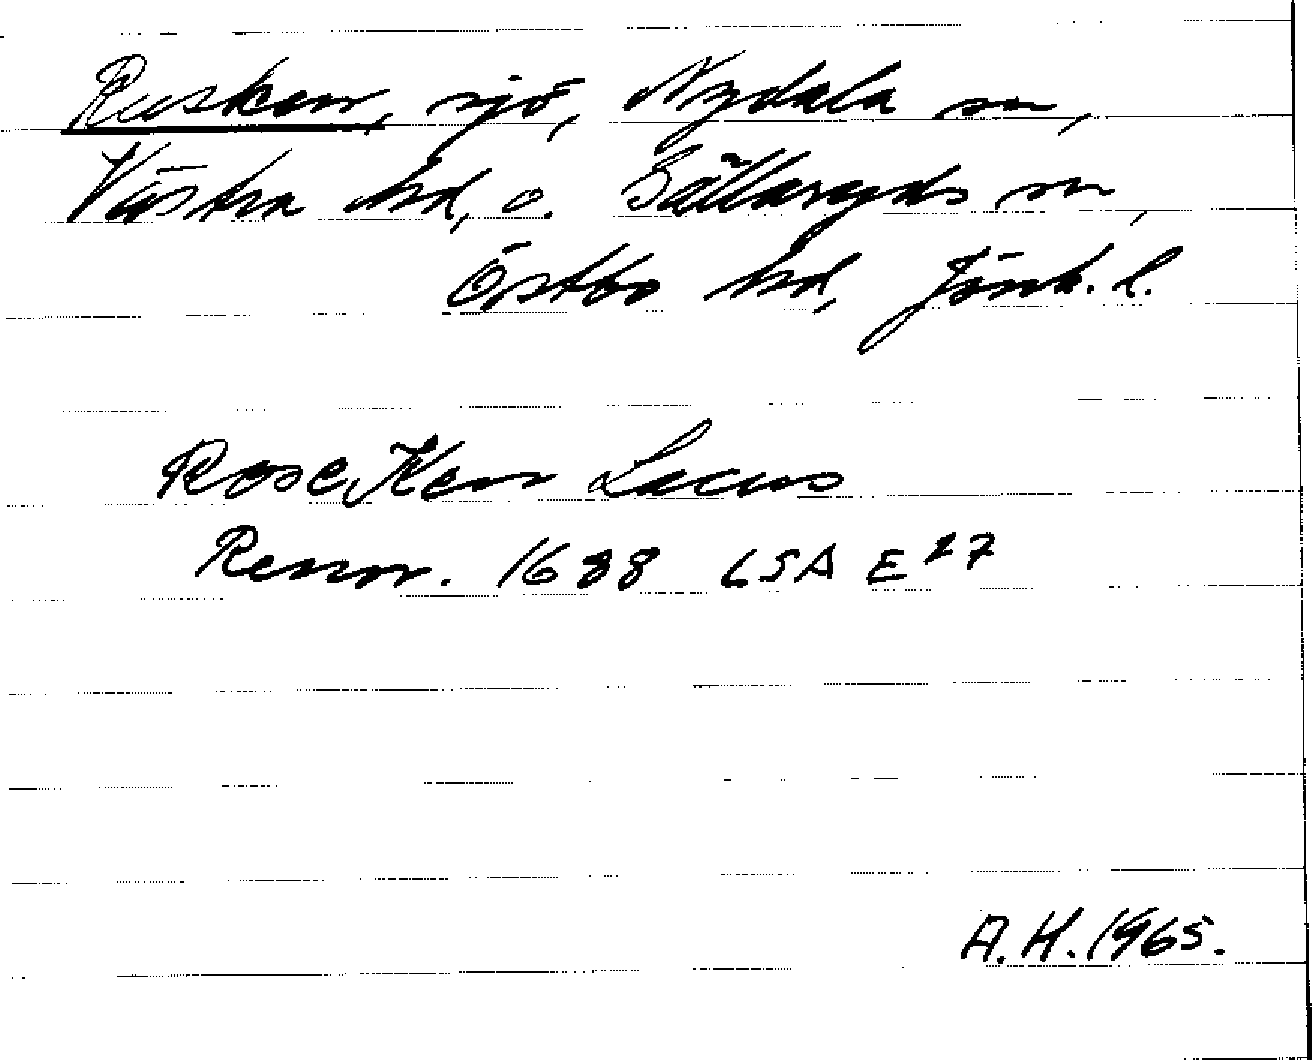 Rusken, sjö, Nydala sn,
Västra hd, o. Bällaryds sn,
Östbo hd, Jönk. l.
Rosekken Lacus
Renov. 1688 LSA E 27
A.H. 1965.